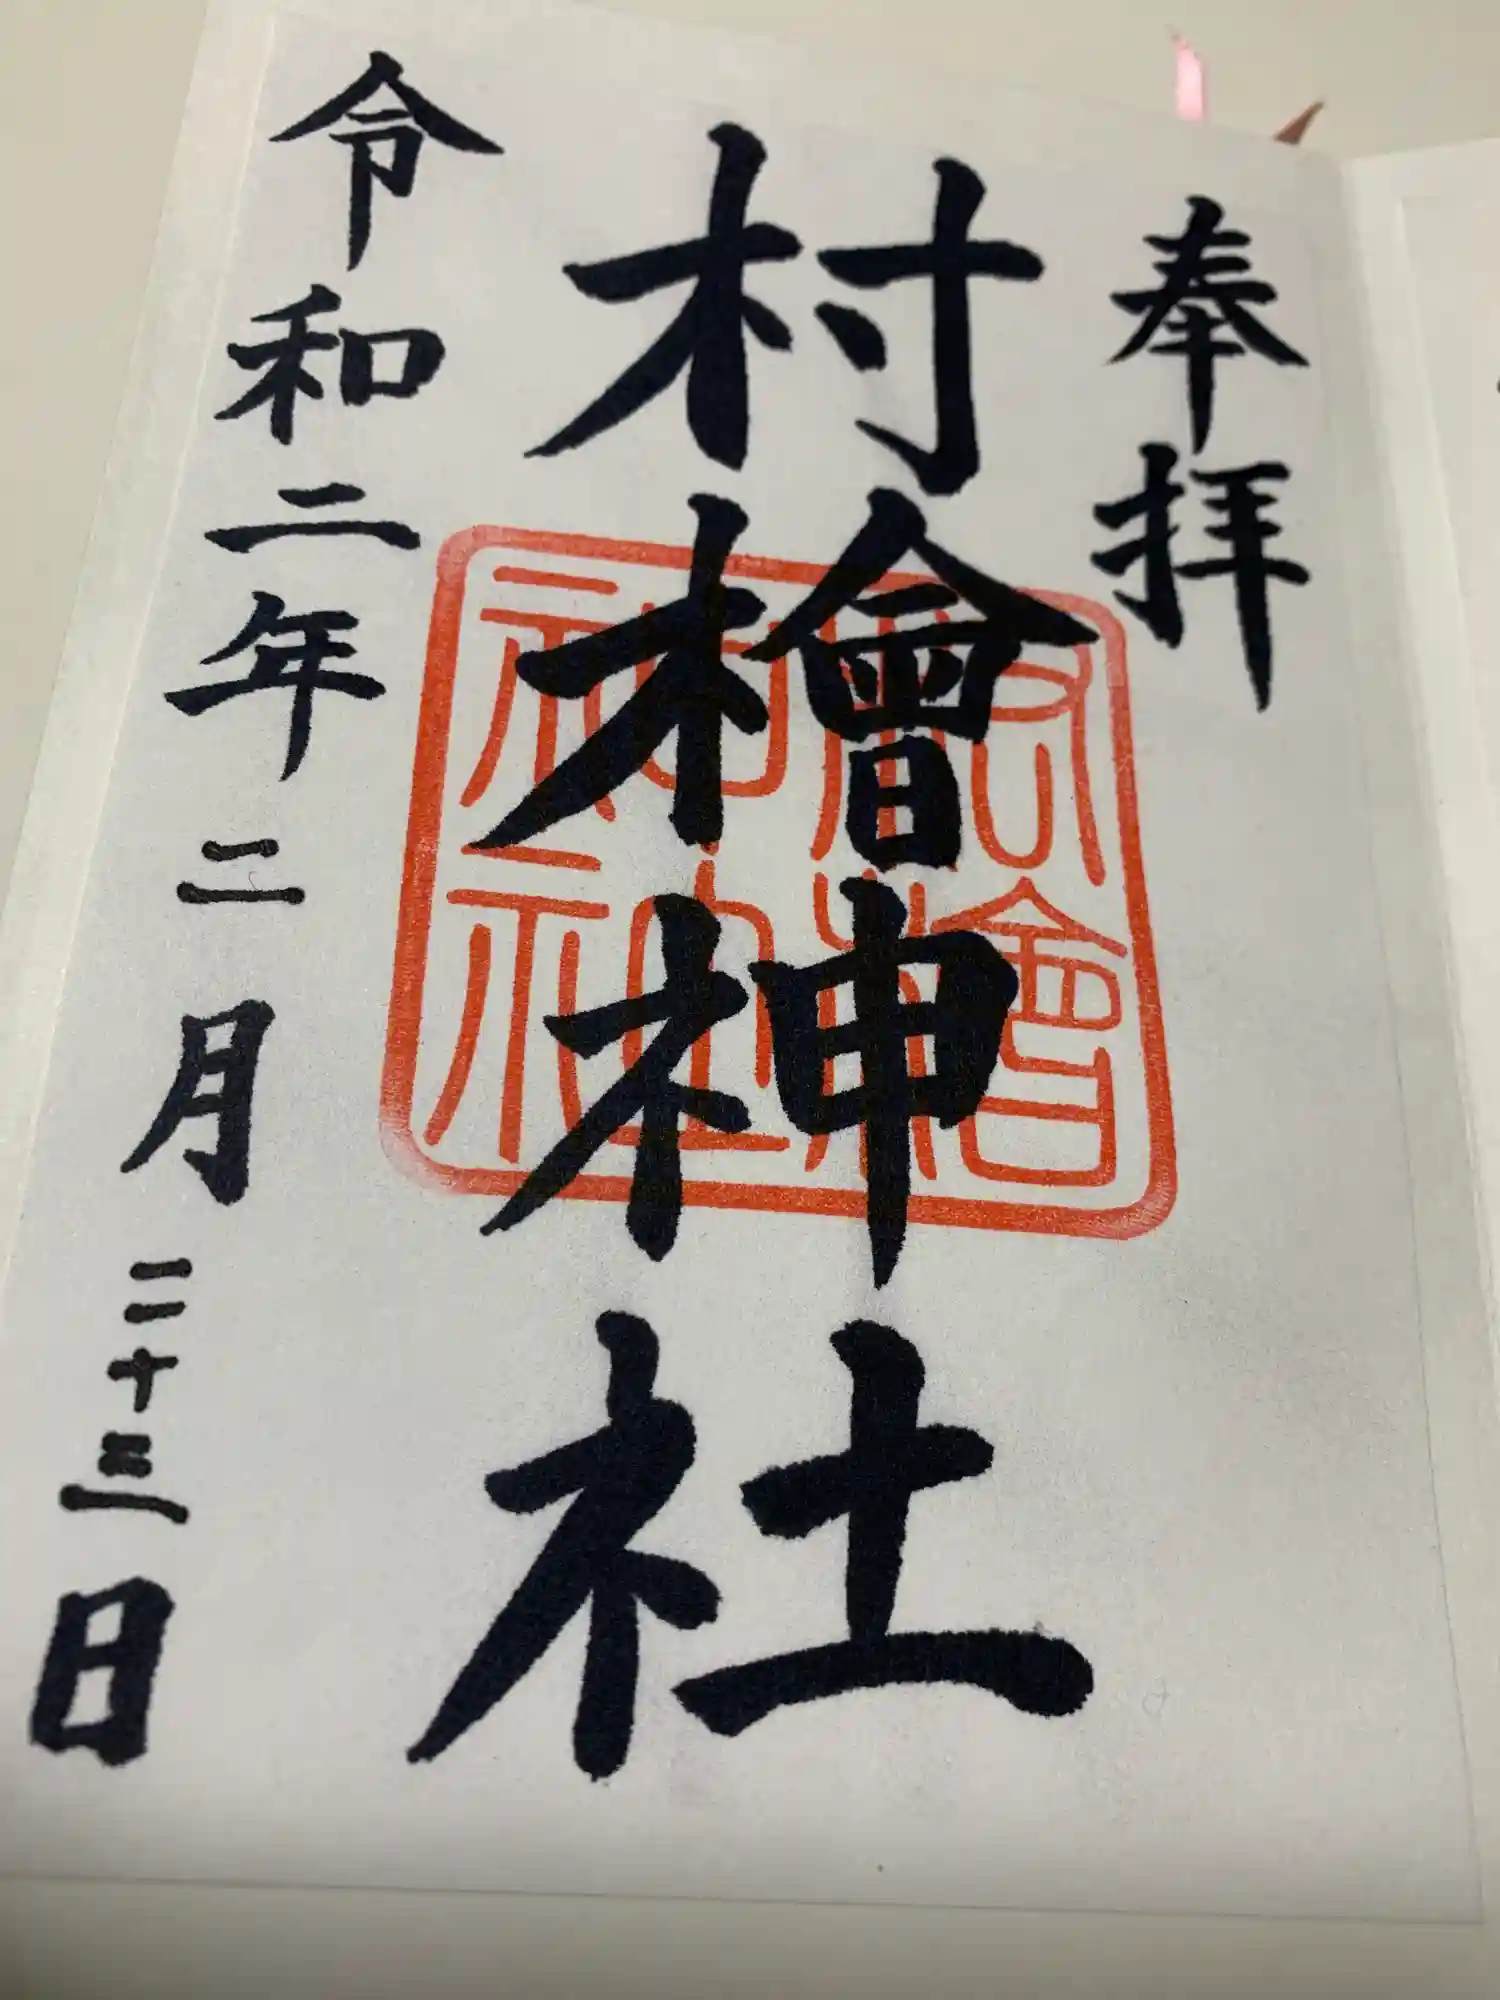 奉拝
村檜神社
村檜神社
令和二年二月二十三日